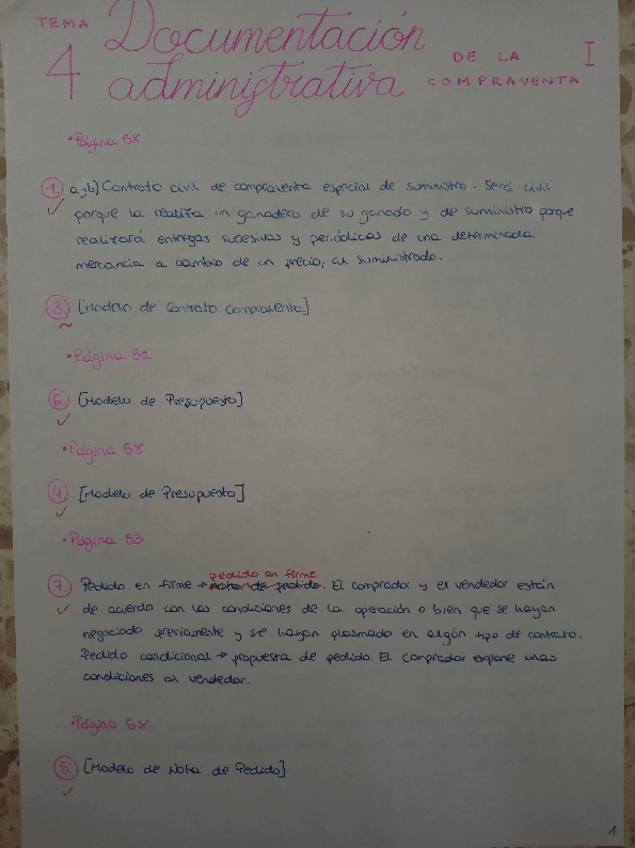 TEMA 4
Documentación
administrativa
DE LA
COMPRAVENTA
I
• Página 58
1. a y b) Contrato civil de compraventa especial de suministro. Será civil
porque la realiza un ganadero de su ganado y de suministro porque
realizará entregas sucesivas y periódicas de una determinada
mercancia a cambio de un precio, al suministrado.
3. [Modelo de Contrato compraventa]
• Página 52
6. [Modelo de Presupuesto]
• Página 58
4. [Modelo de Presupuesto]
• Página 53
pedido en firme.
7. Pedido en firme → nota de pedido. El comprador y el vendedor están
de acuerdo con las condiciones de la operación o bien que se hayan
negociado previamente y se hayan plasmado en algún tipo de contrato.
Pedido condicional → propuesta de pedido. El comprador expone unas
condiciones al vendedor.
• Página 58
5. [Modelo de Nota de Pedido]
1